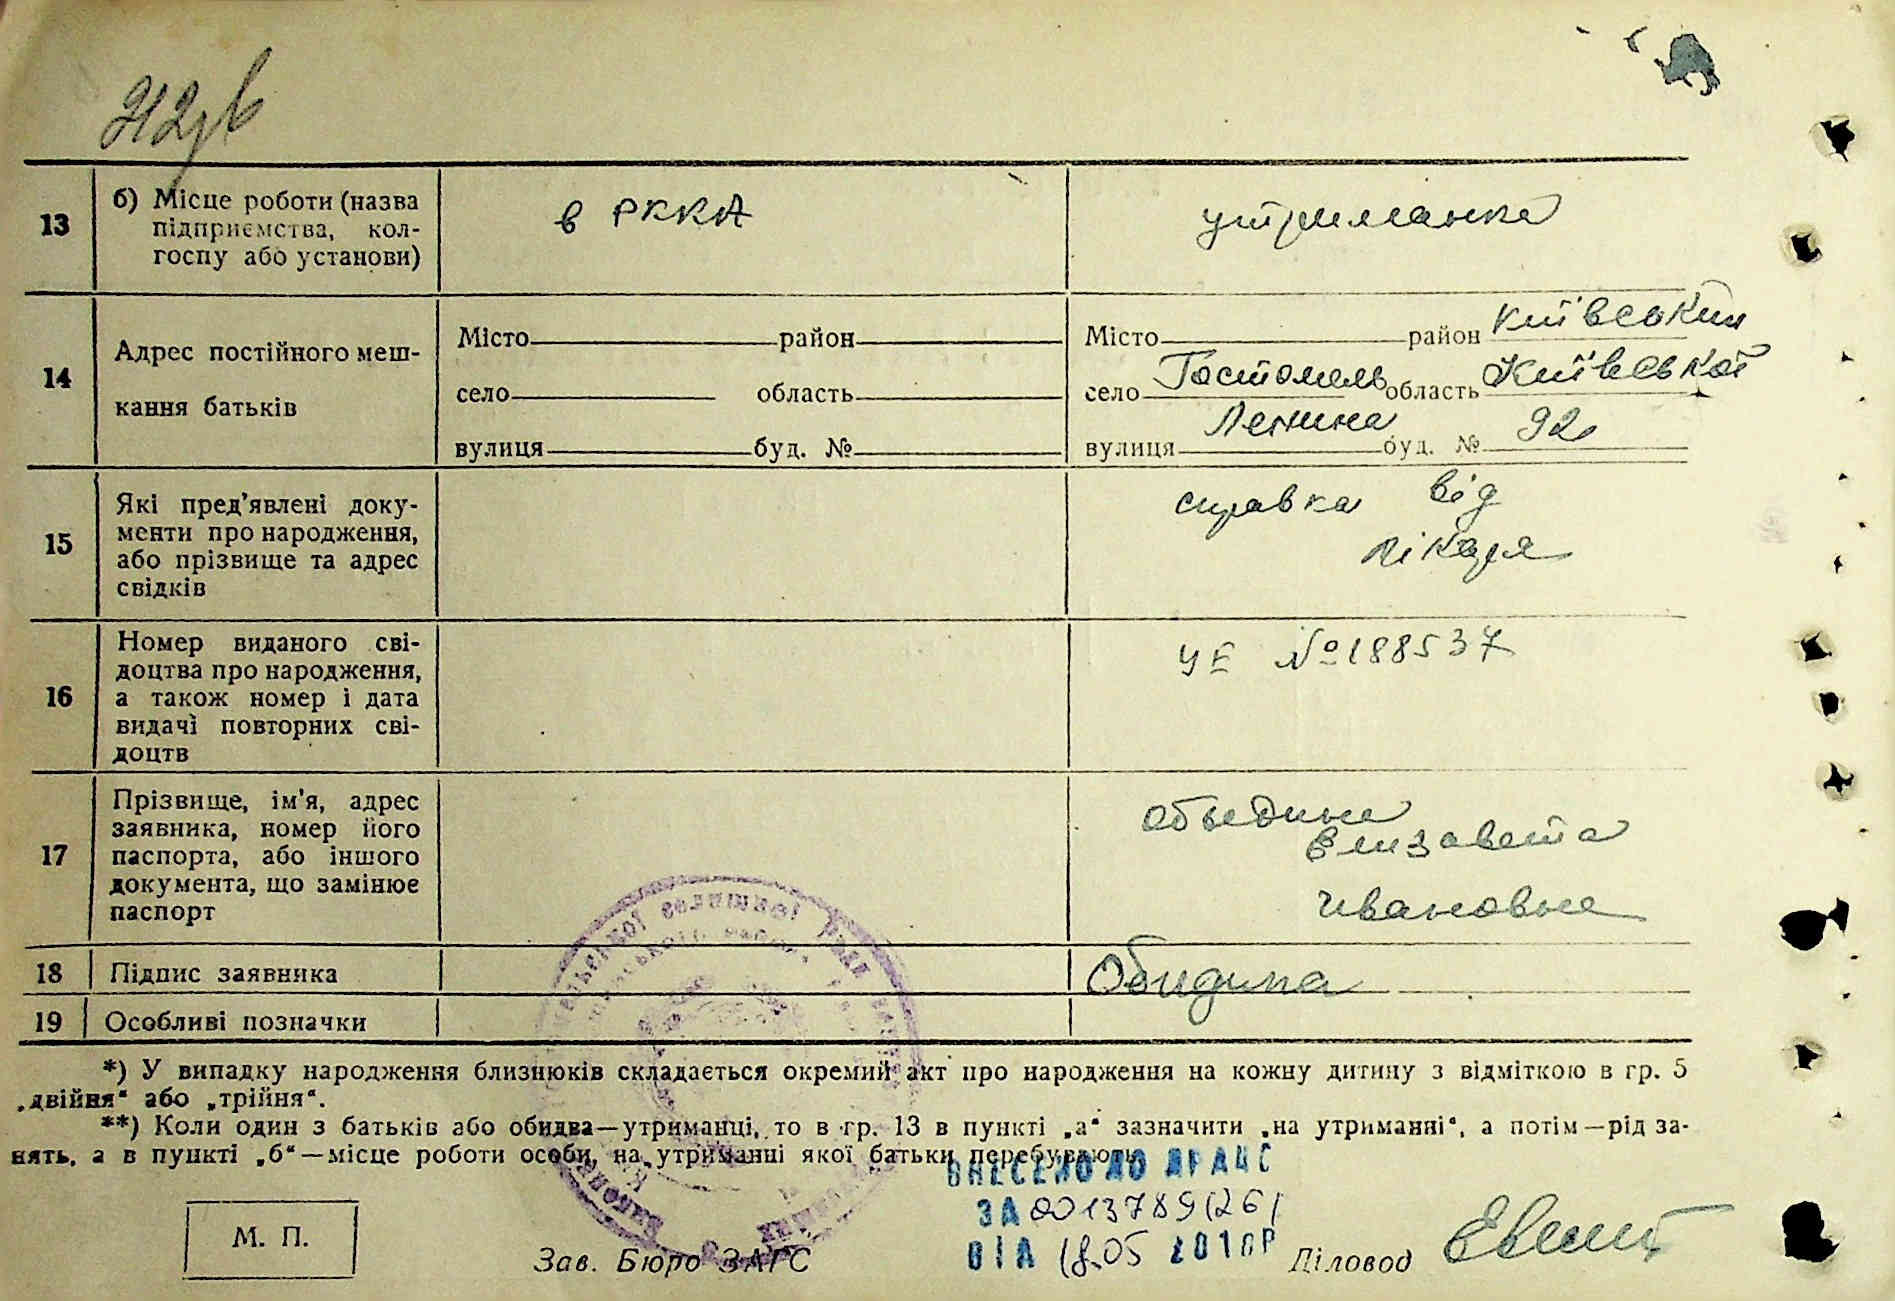 13
б) Місце роботи (назва
підприємства, кол-
госпу або установи)
в РККА
утриманка
14
Адрес постійного меш-
кання батьків
Місто район
село область
вулиця буд. №
Місто район Київський
село Гостомель область Київської
вулиця Леніна буд. № 92
15
Які пред’явлені доку-
менти про народження,
або прізвище та адрес
свідків
справка від
лікаря
16
Номер виданого сві-
доцтва про народження,
а також номер і дата
видачі повторних сві-
доцтв
УЕ №188537
17
Прізвище, ім’я, адрес
заявника, номер його
паспорта, або іншого
документа, що замінює
паспорт
Объедина
Елизавета
Ивановна
18 Підпис заявника
Обидина
19 Особливі позначки
*) У випадку народження близнюків складається окремий акт про народження на кожну дитину з відміткою в гр. 5
„двійня“ або „трійня“.
**) Коли один з батьків або обидва—утриманці, то в гр. 13 в пункті „а“ зазначити „на утриманні“, а потім—рід за-
нять, а в пункті „б“—місце роботи особи, на утриманні якої батьки перебувають.
ВНЕСЕНО ДО ДРАЦС
ЗА 0013789126
ВІД 18.05 2010Р
М. П.
Зав. Бюро ЗАГС
Діловод